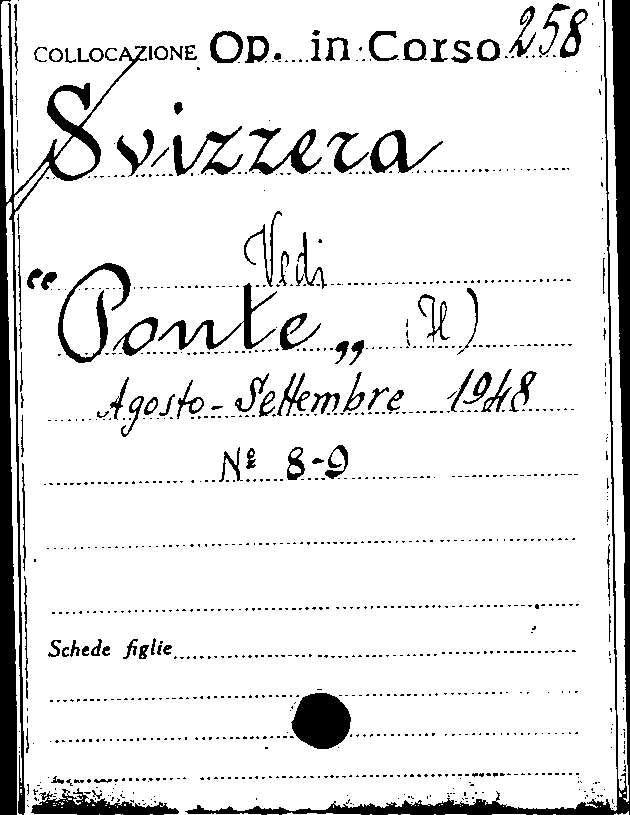 COLLOCAZIONE Op. in Corso 258
Svizzera
Vedi
“Ponte„ (Il)
Agosto - Settembre 1948
Nº 8-9
Schede figlie